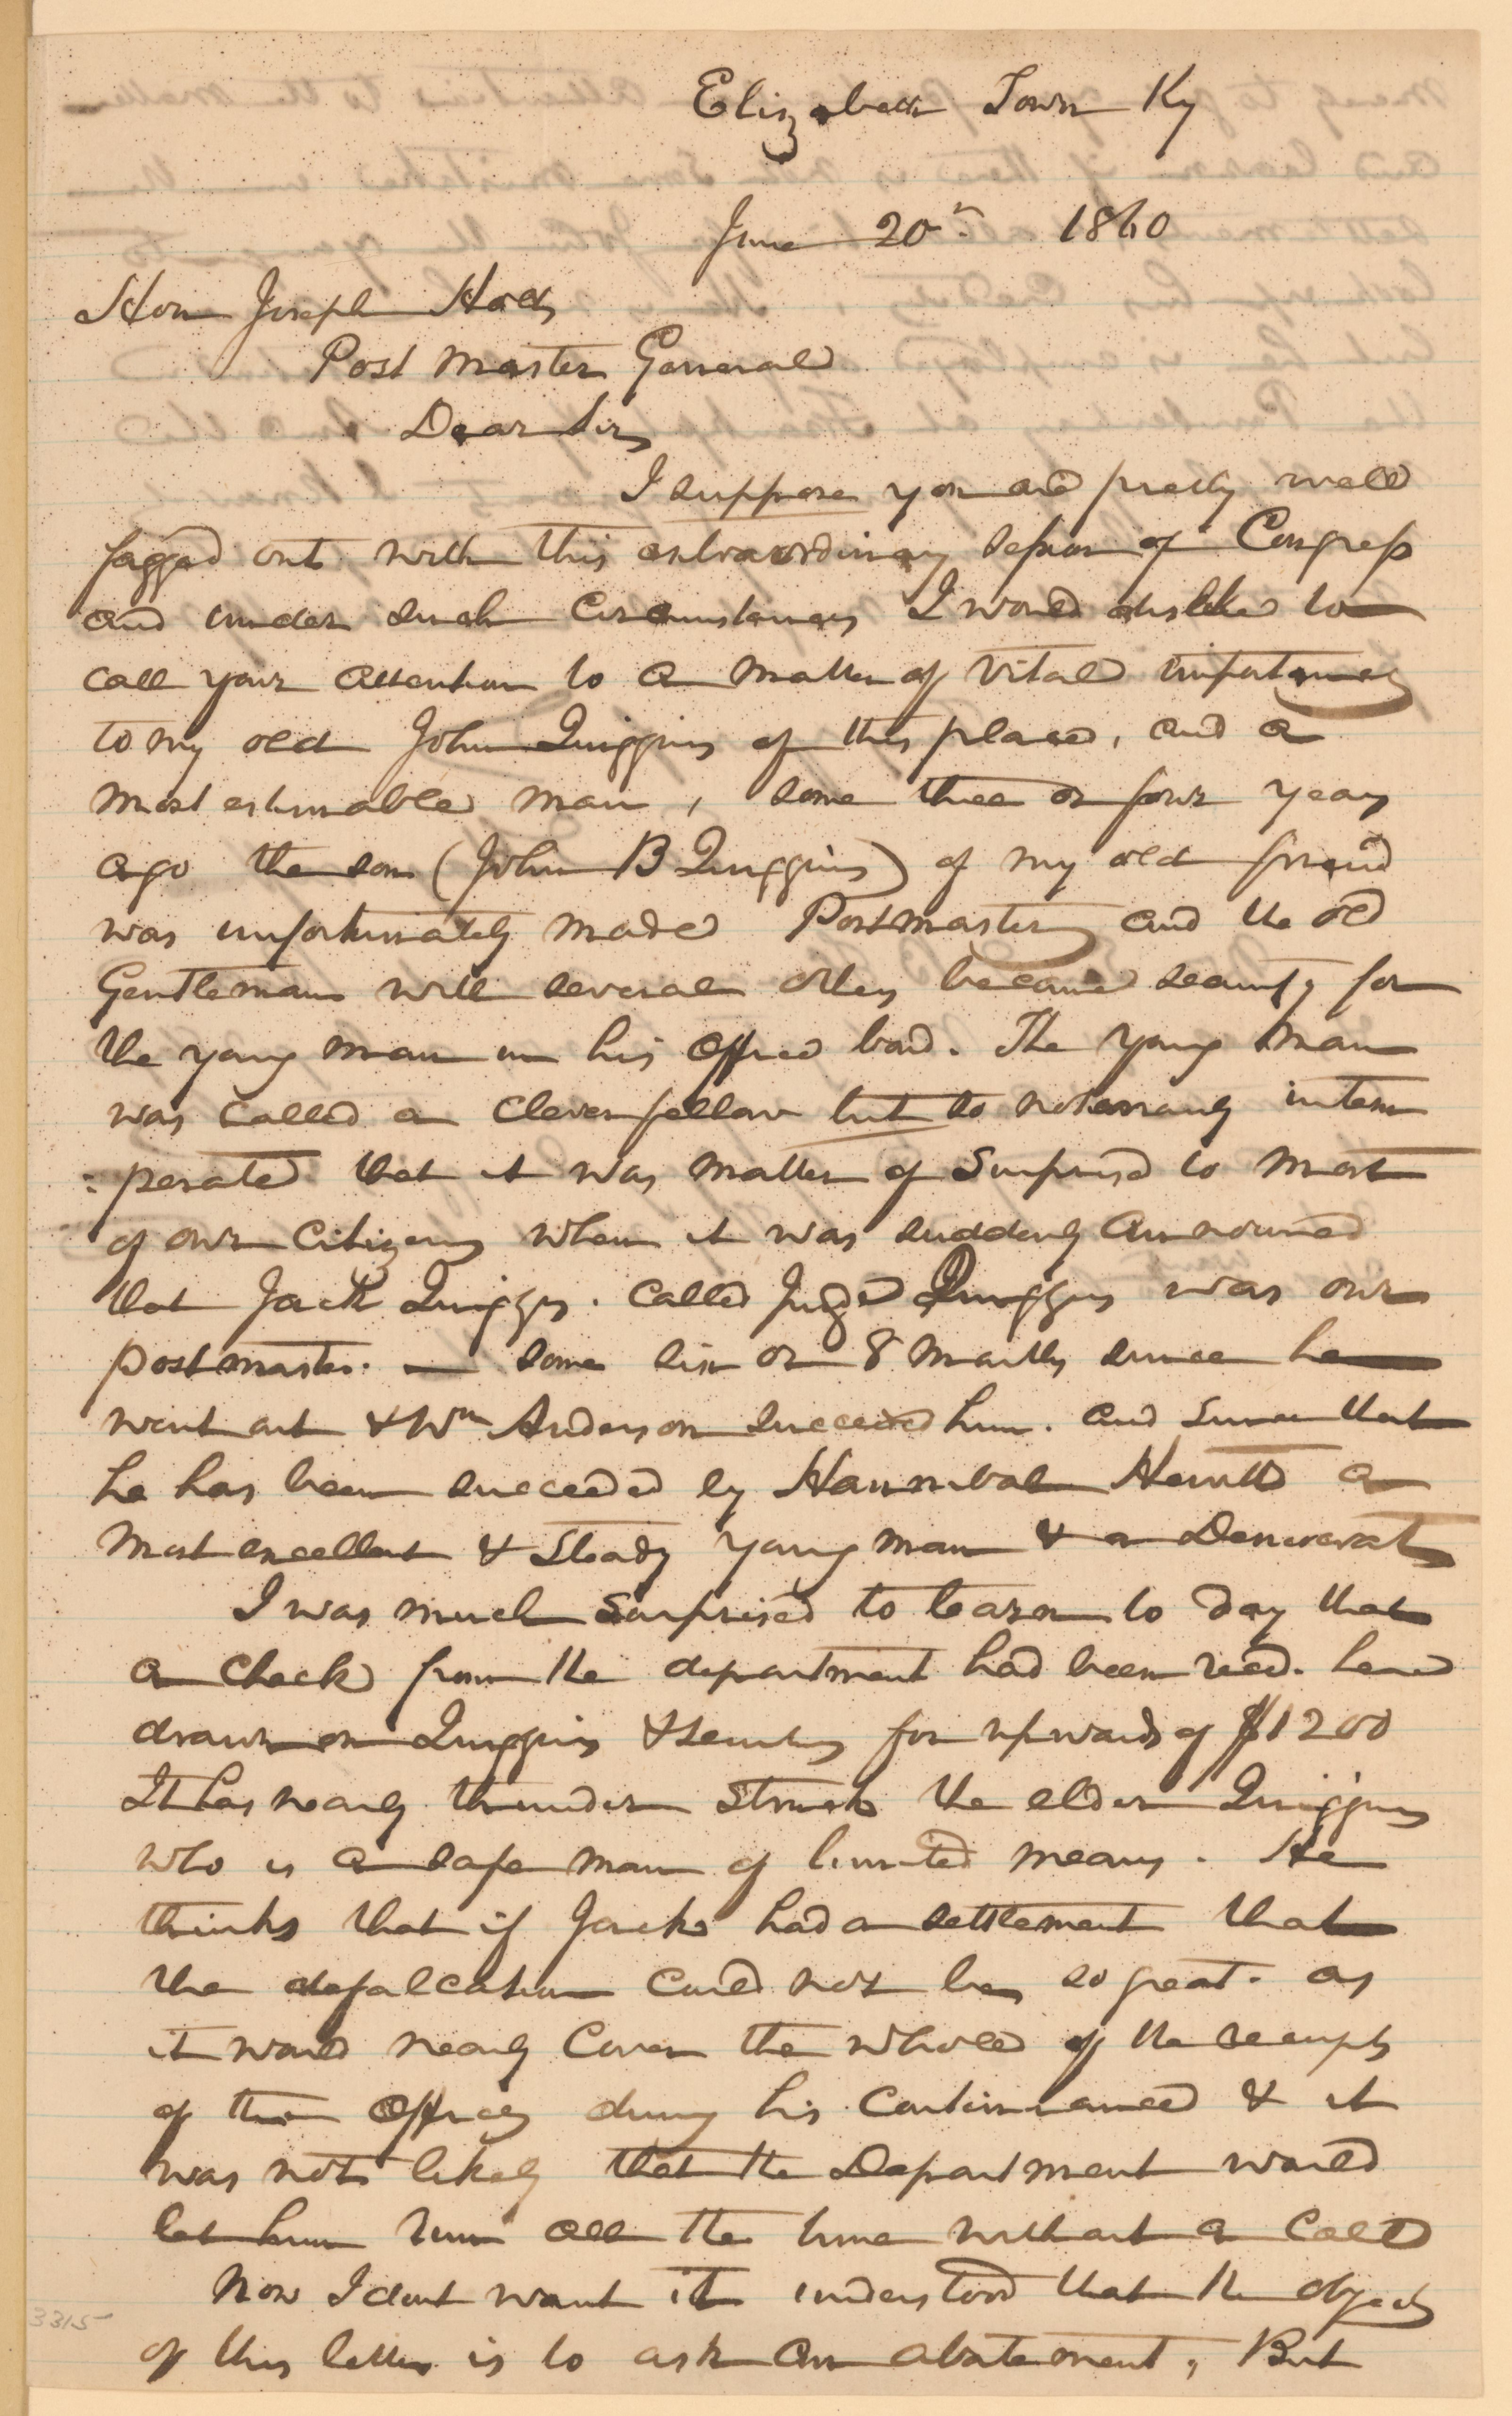 Elizabeth Town Ky
June 20th 1860
Hon Joseph Holt
Post Master General
Dear Sir,
I suppose you are pretty well
fagged out with this extraordinary session of Congress
and under such circumstances I would dislike to
call your attention to a matter of vital importance
to my old John Quiggins of this place, and a
most estimable man, some three or four years
ago the son (John B Quiggins) of my old friend
was unfortunately made Postmaster, and the old
Gentleman with several others became security for
the young man in his office bond. The young man
was called a clever fellow but so notoriously intem
:perate that it was matter of surprise to most
of our citizens when it was suddenly announced
that Jack Quiggins. called Judge Quiggins was our
postmaster. — some six or 8 months since he
went out & Wm Anderson succeeded him. and since that
he has been succeeded by Hannibal Hewitt a
most excellent & steady young man & a Democrat
I was much surprised to learn to day that
a check from the department had been recd. here
drawn on Quiggins & security for upwards of $1200
It has nearly thunder struck the elder Quiggins
who is a safe man of limited means. He
thinks that if Jack had a settlement that
the defalcation could not be so great. as
it would nearly cover the whole of the receipts
of the office during his continuance & it
was not likely that the Department would
let him run all the time without a call
Now I dont want it understood that the object
of this letter is to ask an abatement, But
3315